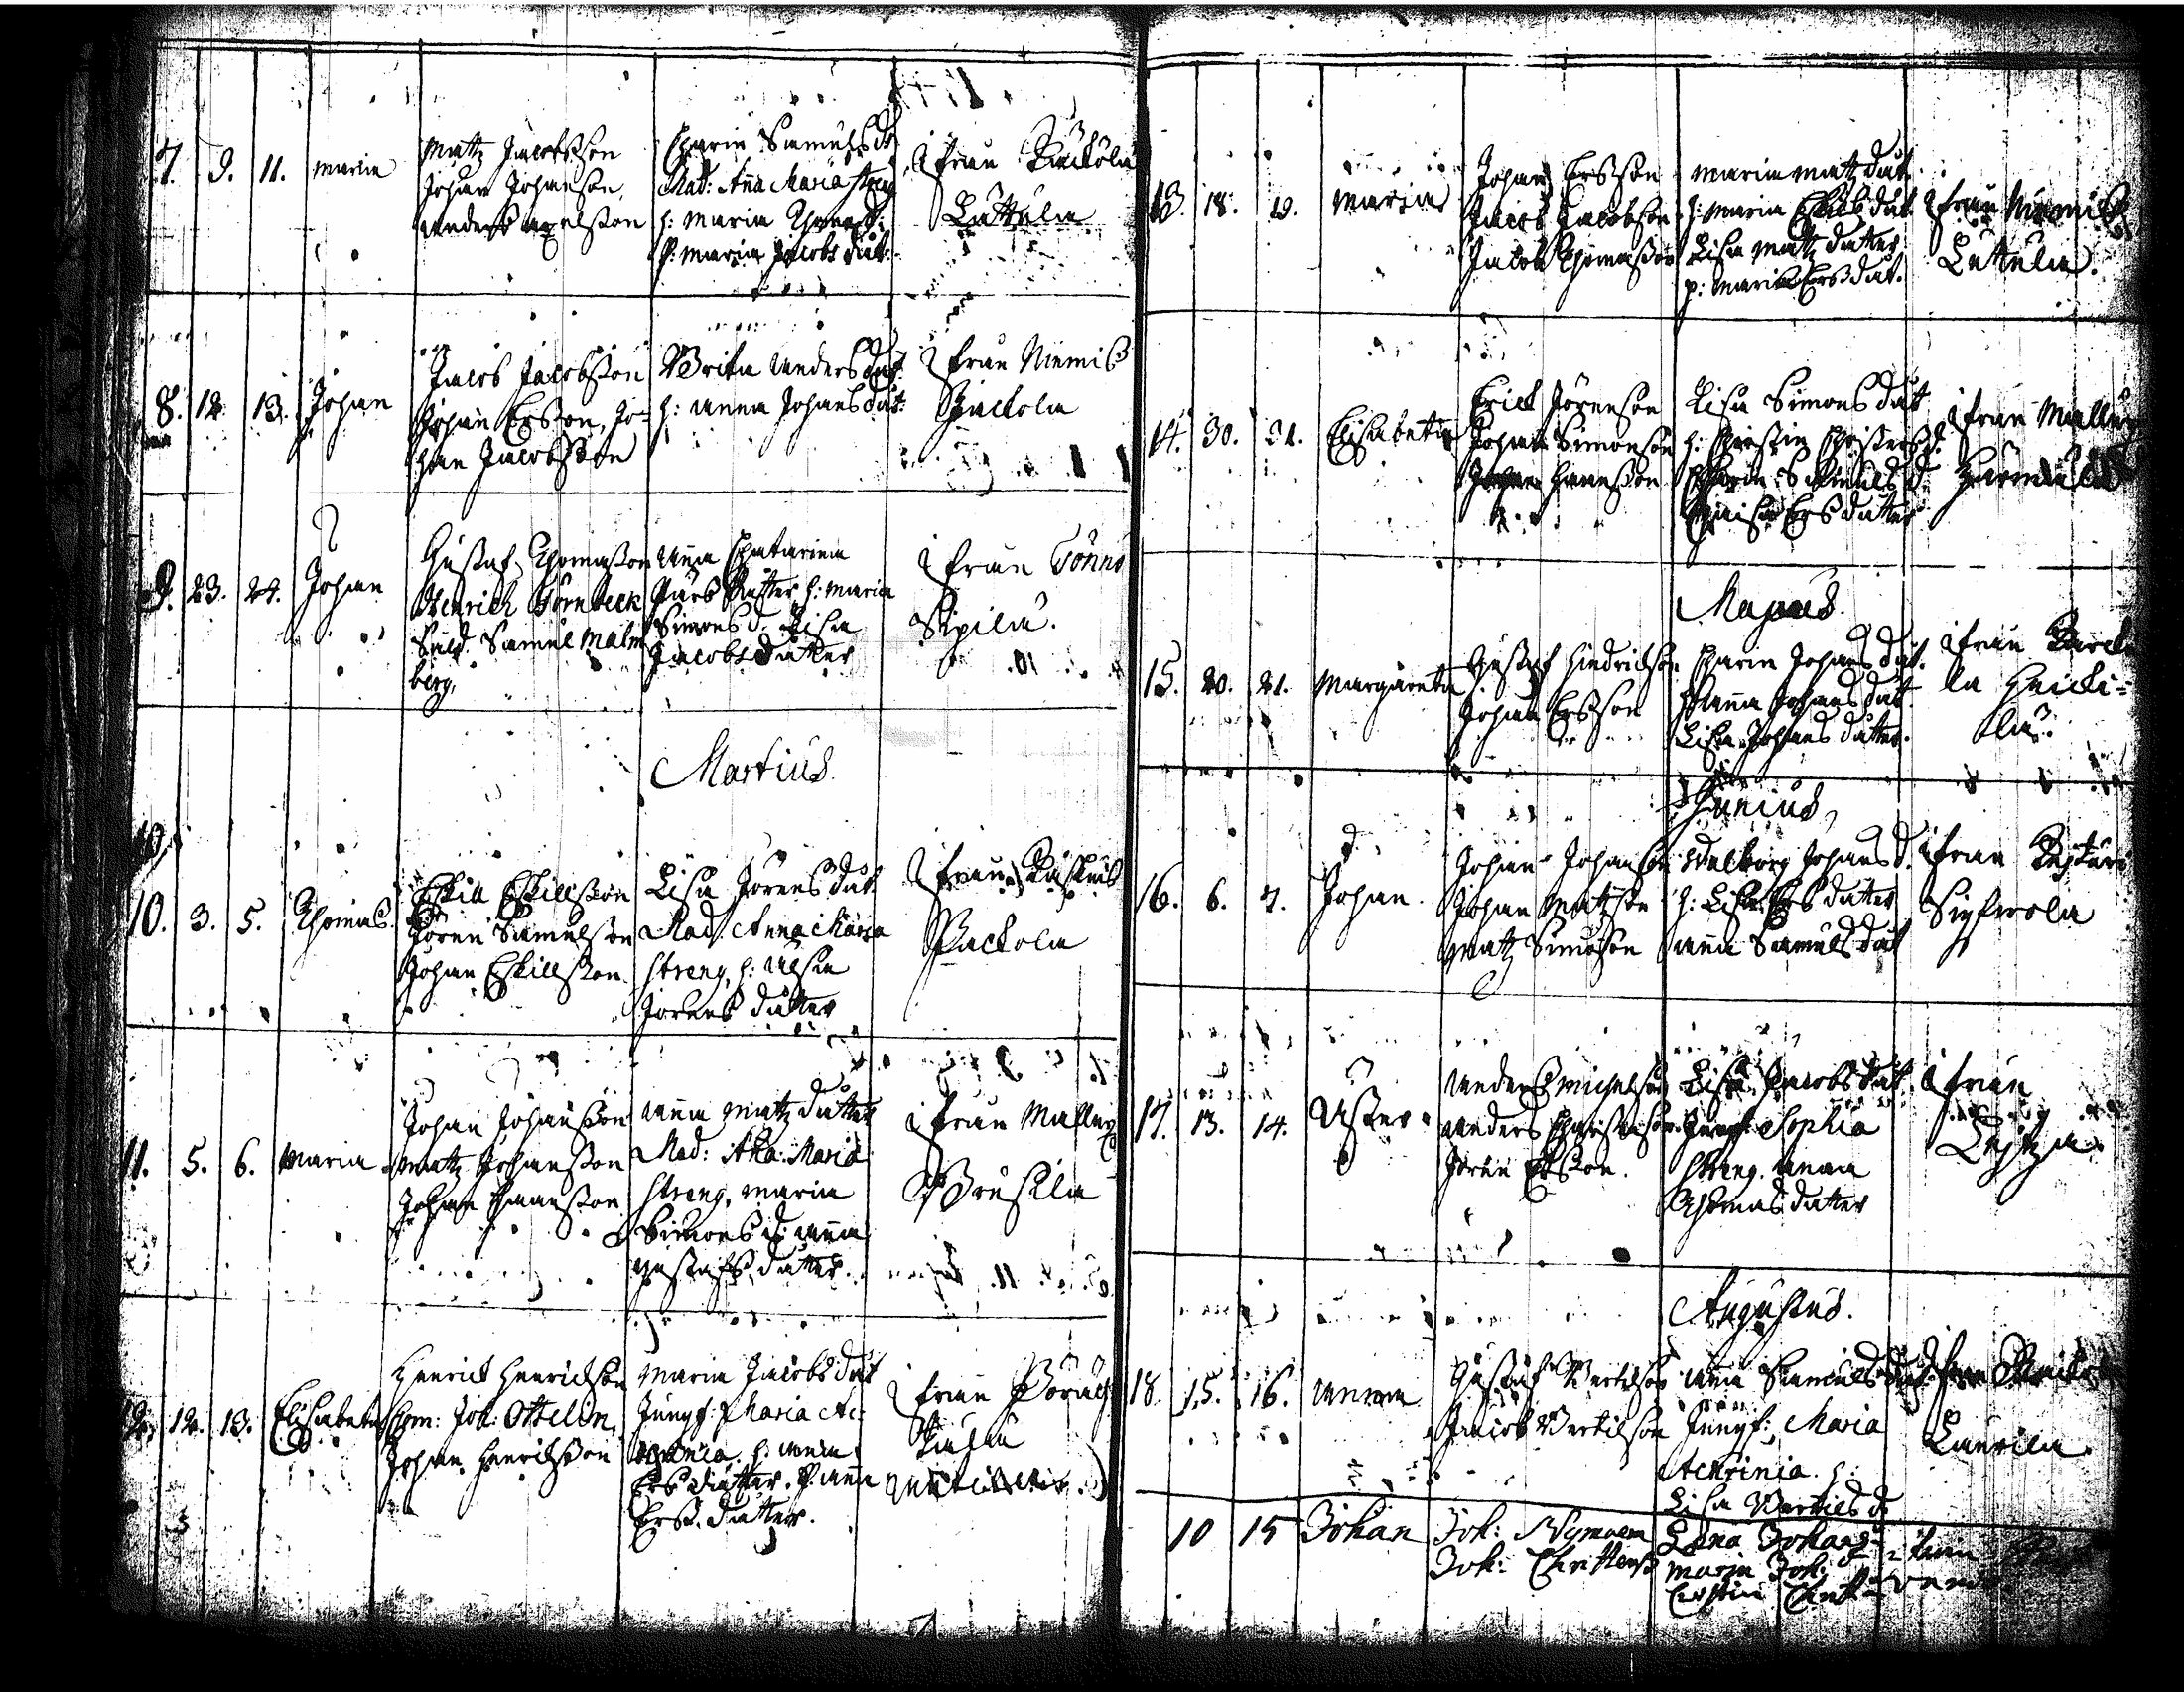 7. 9. 11. Maria
Matz Jacobsson
Johan Johansson
Anders Axelsson
Charin Samuelsdr
Mad: Aña Maria Streng
h: Maria Thomasd:
P: Maria Jacobs dut:
ifrån
Luttula
8. 12. 13. Johan
Jacob Jacobsson
Johan Ersson, Jo-
han Jacobsson
Brita Anders dut
h: Anna Johans dut:
ifrån Niemis
Packola
9. 23. 24. Johan
Gustaf Thomasson
Henrich Törnbeck
Sold. Samuel Malm
berg.
Anna Chatarina
Lars dutter h: Maria
Simons d. Lisa
Jacobs dutter
ifrån Tönnö
Sipilä.
Martius.
10. 3. 5. Thomas.
Eskill Eskillsson
Jören Samuelsson
Johan Eskillsson
Lisa Jörens dut
Mad. Anna Maria
Streng, h:
Jörens dutter
ifrån
Packola
11. 5. 6. Maria
Johan Johansson
Matz Johansson
Johan Hansson
Anna Matz dutter
Mad: Aña: Maria
Streng, Maria
Simons d: Anna
Gustafs dutter.
ifrån
12. 12. 13. Elisabeta
Henrich Henrichson
Com: Joh: Ottelin,
Johan Henrichsson
Maria Jacobs dut
Jungf: Maria Ac-
h: Anna
Ers dutter. P: Anna
Erss dutter.
ifrån
13. 18. 19. Maria
Johan Ersson
Jacob Jacobson
Jacob Thomasson
Maria Matz dut.
h: Maria Eskils dut.
Lisa Matz dutter
p: Maria Ers dut.
ifrån Niemis
Luttula.
14. 30. 31. Elisabetha
Erick Jörenson
Johan Simonson
Johan Hansson
Lisa Simons dut
h: Christin Christers d.
Charin Samuels d:
Ers dutter
ifrån
Majus.
15. 20. 21. Margareta
Gustaf Hindrichson
Johan Ersson
Charin Johans dut.
h: Anna Johans dut
Lisa Johans dutter.
ifrån
la Heicki-
lä.
Junius,
16. 6. 7. Johan.
Johan Johanson
Johan Matzson
Matz Simonson
Walborg Johans d.
h: Lisa Ers dutter
Anna Samuels dut
ifrån
17. 13. 14.
Anders Michelson
Anders Christerson
Jören Ersson.
Lisa Jacobs dut
Jungf: Sophia
Streng. Anna
Thomas dutter
ifrån
Augustus.
18. 15. 16. Anna
Gustaf Bertilson
Jacob Bertilson
Anna Samuels dut.
Jungf: Maria
Achrinia. h:
Lisa Bertils d:
ifrån
Laurila.
10 15 Johan
Joh: Nyman
Joh: Christerss
Lena Johans
Maria Joh:
Cerstin Christ-